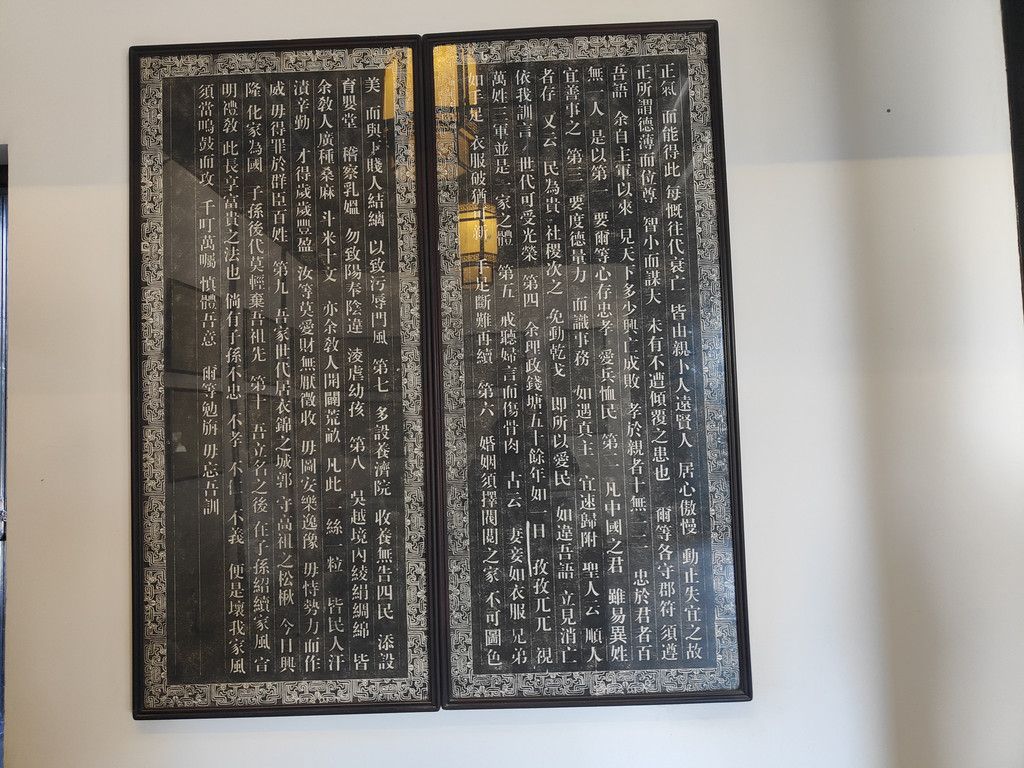 正氣 而能得此 每慨往代衰亡 皆由親下人遠賢人 居心傲慢 動止失宜之故
正所謂德薄而位尊 智小而謀大 未有不遭傾覆之患也 爾等各守郡符 須遵
吾語 余自主軍以來 見天下多少興亡成敗 孝於親者十無一二 忠於君者百
無一人 是以第一 要爾等心存忠孝 愛兵恤民 第二 凡中國之君 雖易異姓
宜善事之 第三 要度德量力 而識事務 如遇真主 宜速歸附 聖人云 順人
者存 又云 民為貴 社稷次之 免動乾戈 即所以愛民 如違吾語 立見消亡
依我訓言 世代可受光榮 第四 余理政錢塘五十餘年如一日 孜孜兀兀 視
萬姓三軍並是一家之體 第五 戒聽婦言而傷骨肉 古云 妻妾如衣服 兄弟
如手足 衣服破猶可新 手足斷難再續 第六 婚姻須擇閥閱之家 不可圖色
美 而與下賤人結縭 以致污辱門風 第七 多設養濟院 收養無告四民 添設
育嬰堂 稽察乳媼 勿致陽奉陰違 淩虐幼孩 第八 吳越境內綾絹綢綿 皆
余教人廣種桑麻 斗米十文 亦余教人開闢荒畝 凡此一絲一粒 皆民人汗
漬辛勤 才得歲歲豐盈 汝等莫愛財無厭徵收 毋圖安樂逸豫 毋恃勢力而作
威 毋得罪於群臣百姓 第九 吾家世代居衣錦之城郭 守高祖之松楸 今日興
隆 化家為國 子孫後代莫輕棄吾祖先 第十 吾立名之後 在子孫紹續家風 宣
明禮教 此長享富貴之法也 倘有子孫不忠 不孝 不仁 不義 便是壞我家風
須當鳴鼓而攻 千叮萬囑 慎體吾意 爾等勉旃 毋忘吾訓